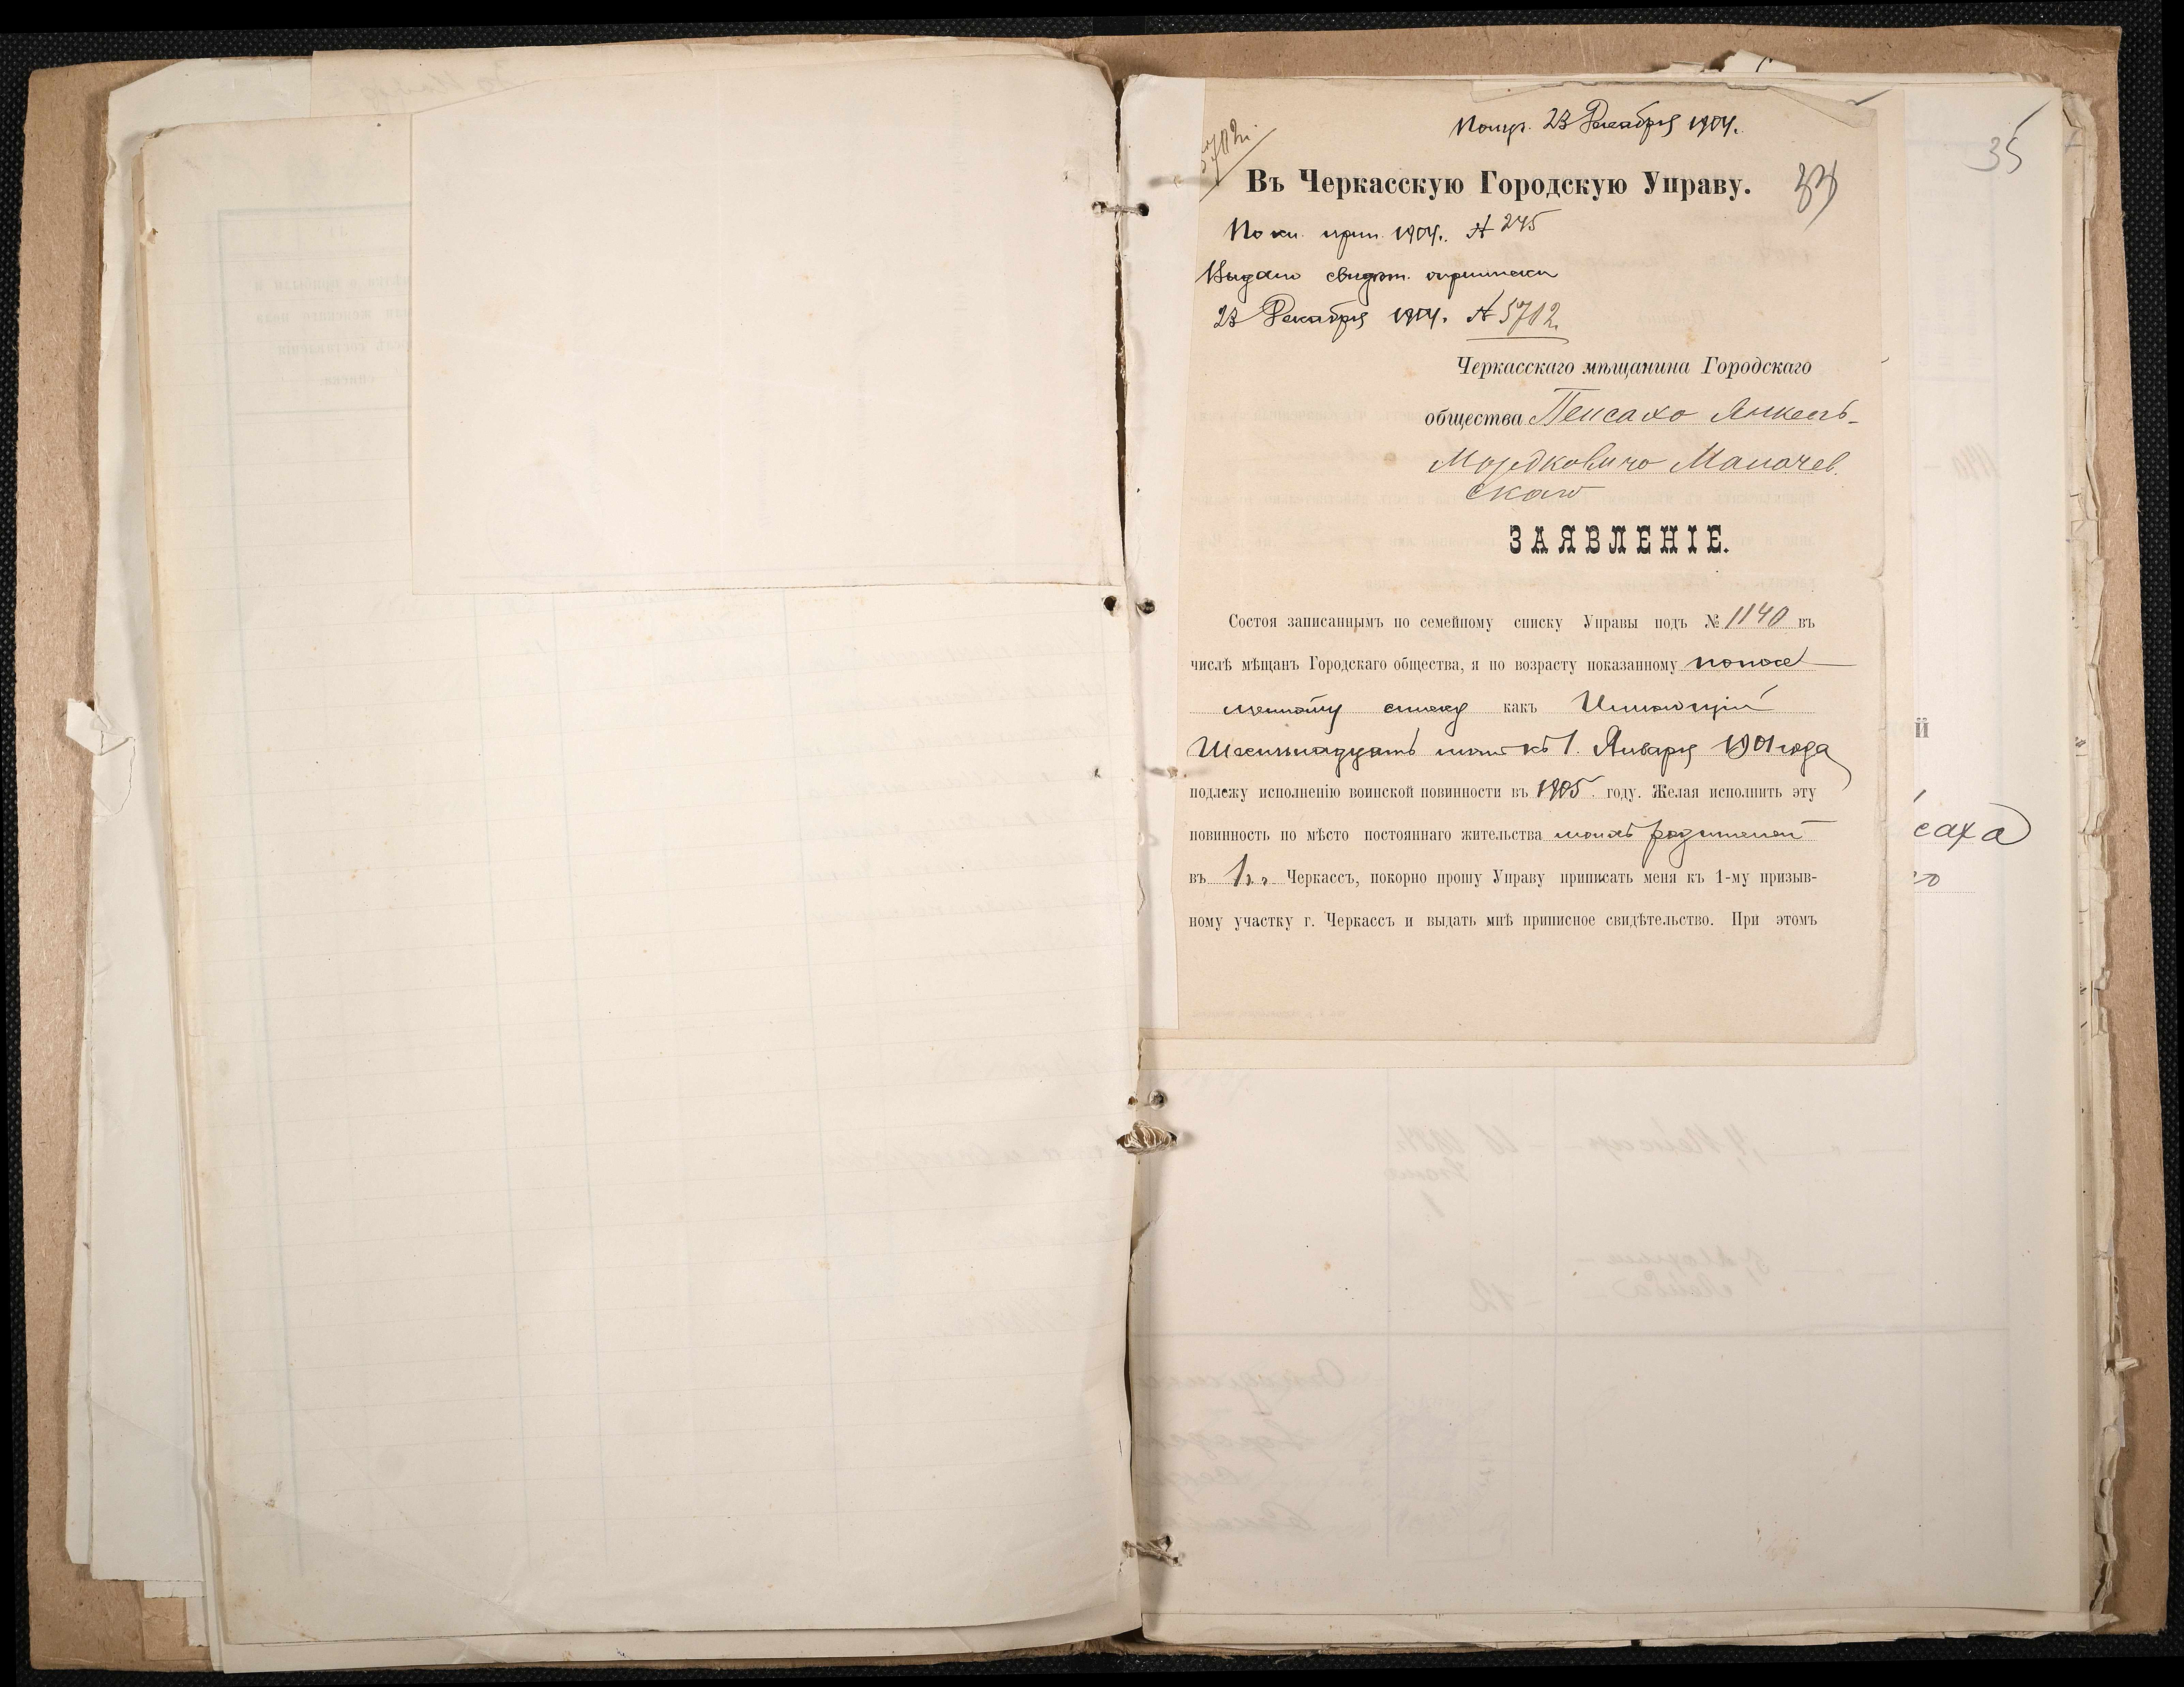 Получ. 23 Декабря 1904.
5712.
35
Въ Черкасскую Городскую Управу.
По кн. прип. 1904. № 245
Выдано свидѣт. о приписки
23 Декабря 1904. № 5712.
Черкасскаго мѣщанина Городскаго
общества Пейсаха Янкель-
Мордковича Маначев
скаго
ЗАЯВЛЕНІЕ.
Состоя записаннымъ по семейному списку Управы подъ № 1140 въ
числѣ мѣщанъ Городскаго общества, я по возрасту показанному
списку какъ Имѣющій
лѣтъ къ 1. Января 1901 года
подлежу исполненію воинской повинности въ 1905 году. Желая исполнить эту
повинность по мѣсто постояннаго жительства моихъ родителей
въ г. Черкассъ, покорно прошу Управу приписать меня къ 1-му призыв-
ному участку г. Черкассъ и выдать мнѣ приписное свидѣтельство. При этомъ
й
саха
го